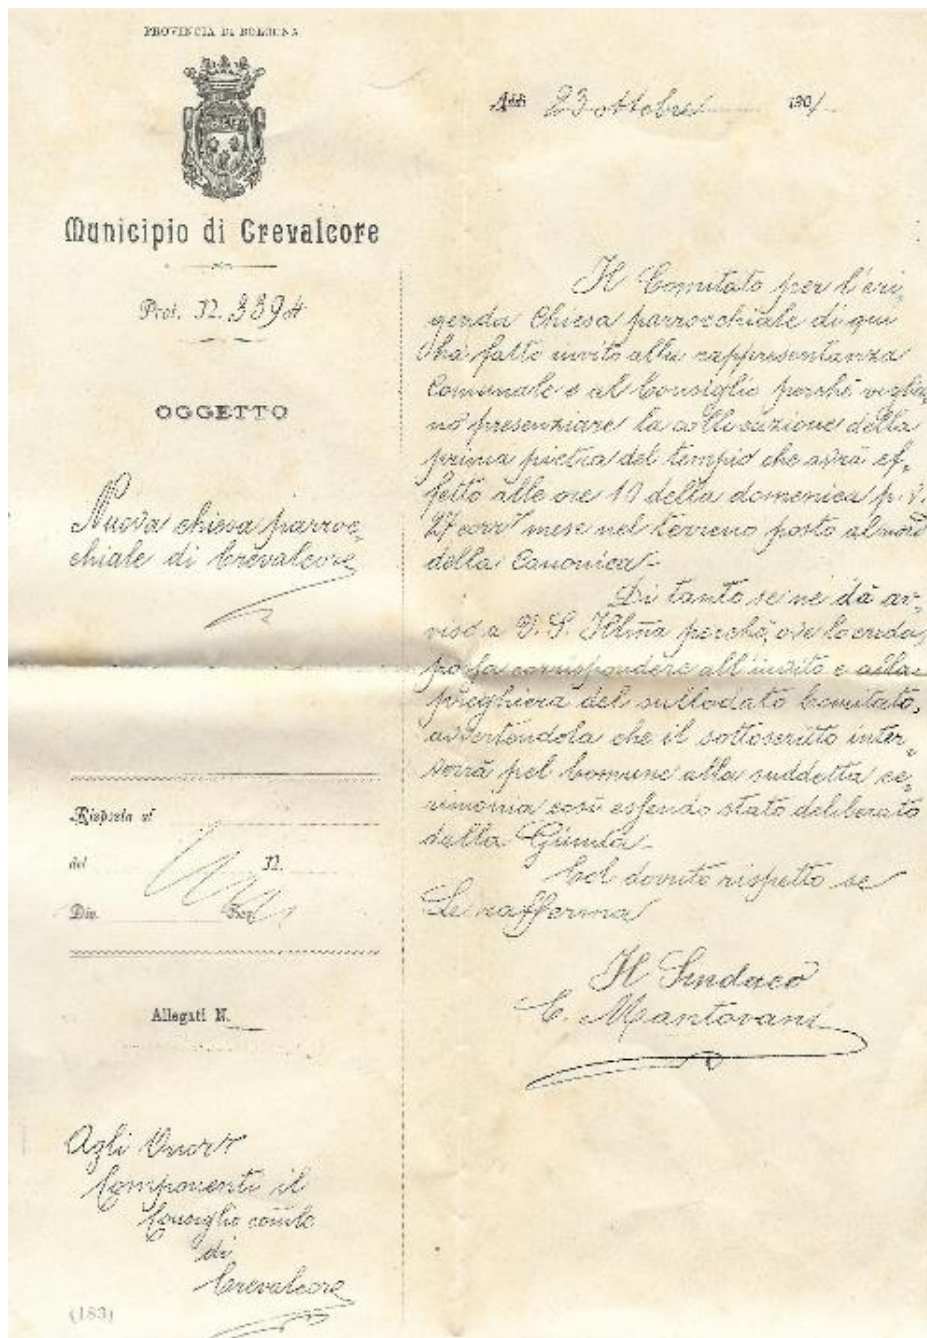 PROVINCIA DI BOLOGNA
Municipio di Crevalcore
Prot. N. 3394
OGGETTO
Nuova chiesa parroc-
chiale di Crevalcore
Risposta al
del N.
Div. Sez.
Allegati N.
Agli Onor.
Componenti il
Consiglio comle
di
Crevalcore
(183)
Addì 23 ottobre 1901
Il Comitato per l'eri-
genda Chiesa parrocchiale di qui
ha fatto invito alla rappresentanza
Comunale e al Consiglio perchè voglia-
no presenziare la collocazione della
prima pietra del tempio che avrà ef-
fetto alle ore 10 della domenica p. v.
27 corr mese nel terreno posto al nord
della Canonica-
Di tanto se ne dà av-
viso a V. S. Illma perchè, ove lo creda,
possa corrispondere all'invito e alla
preghiera del sullodato Comitato,
avvertendola che il sottoscritto inter-
verrà pel Comune alla suddetta ce-
rimonia così essendo stato deliberato
dalla Giunta-
Col dovuto rispetto se
Le rafferma
Il Sindaco
C. Mantovani